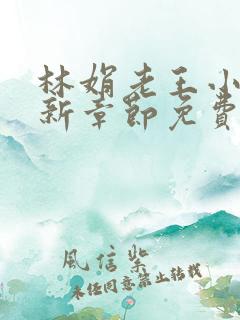 林娟老王小
新章節免費
風信紫
未经同意禁止转载